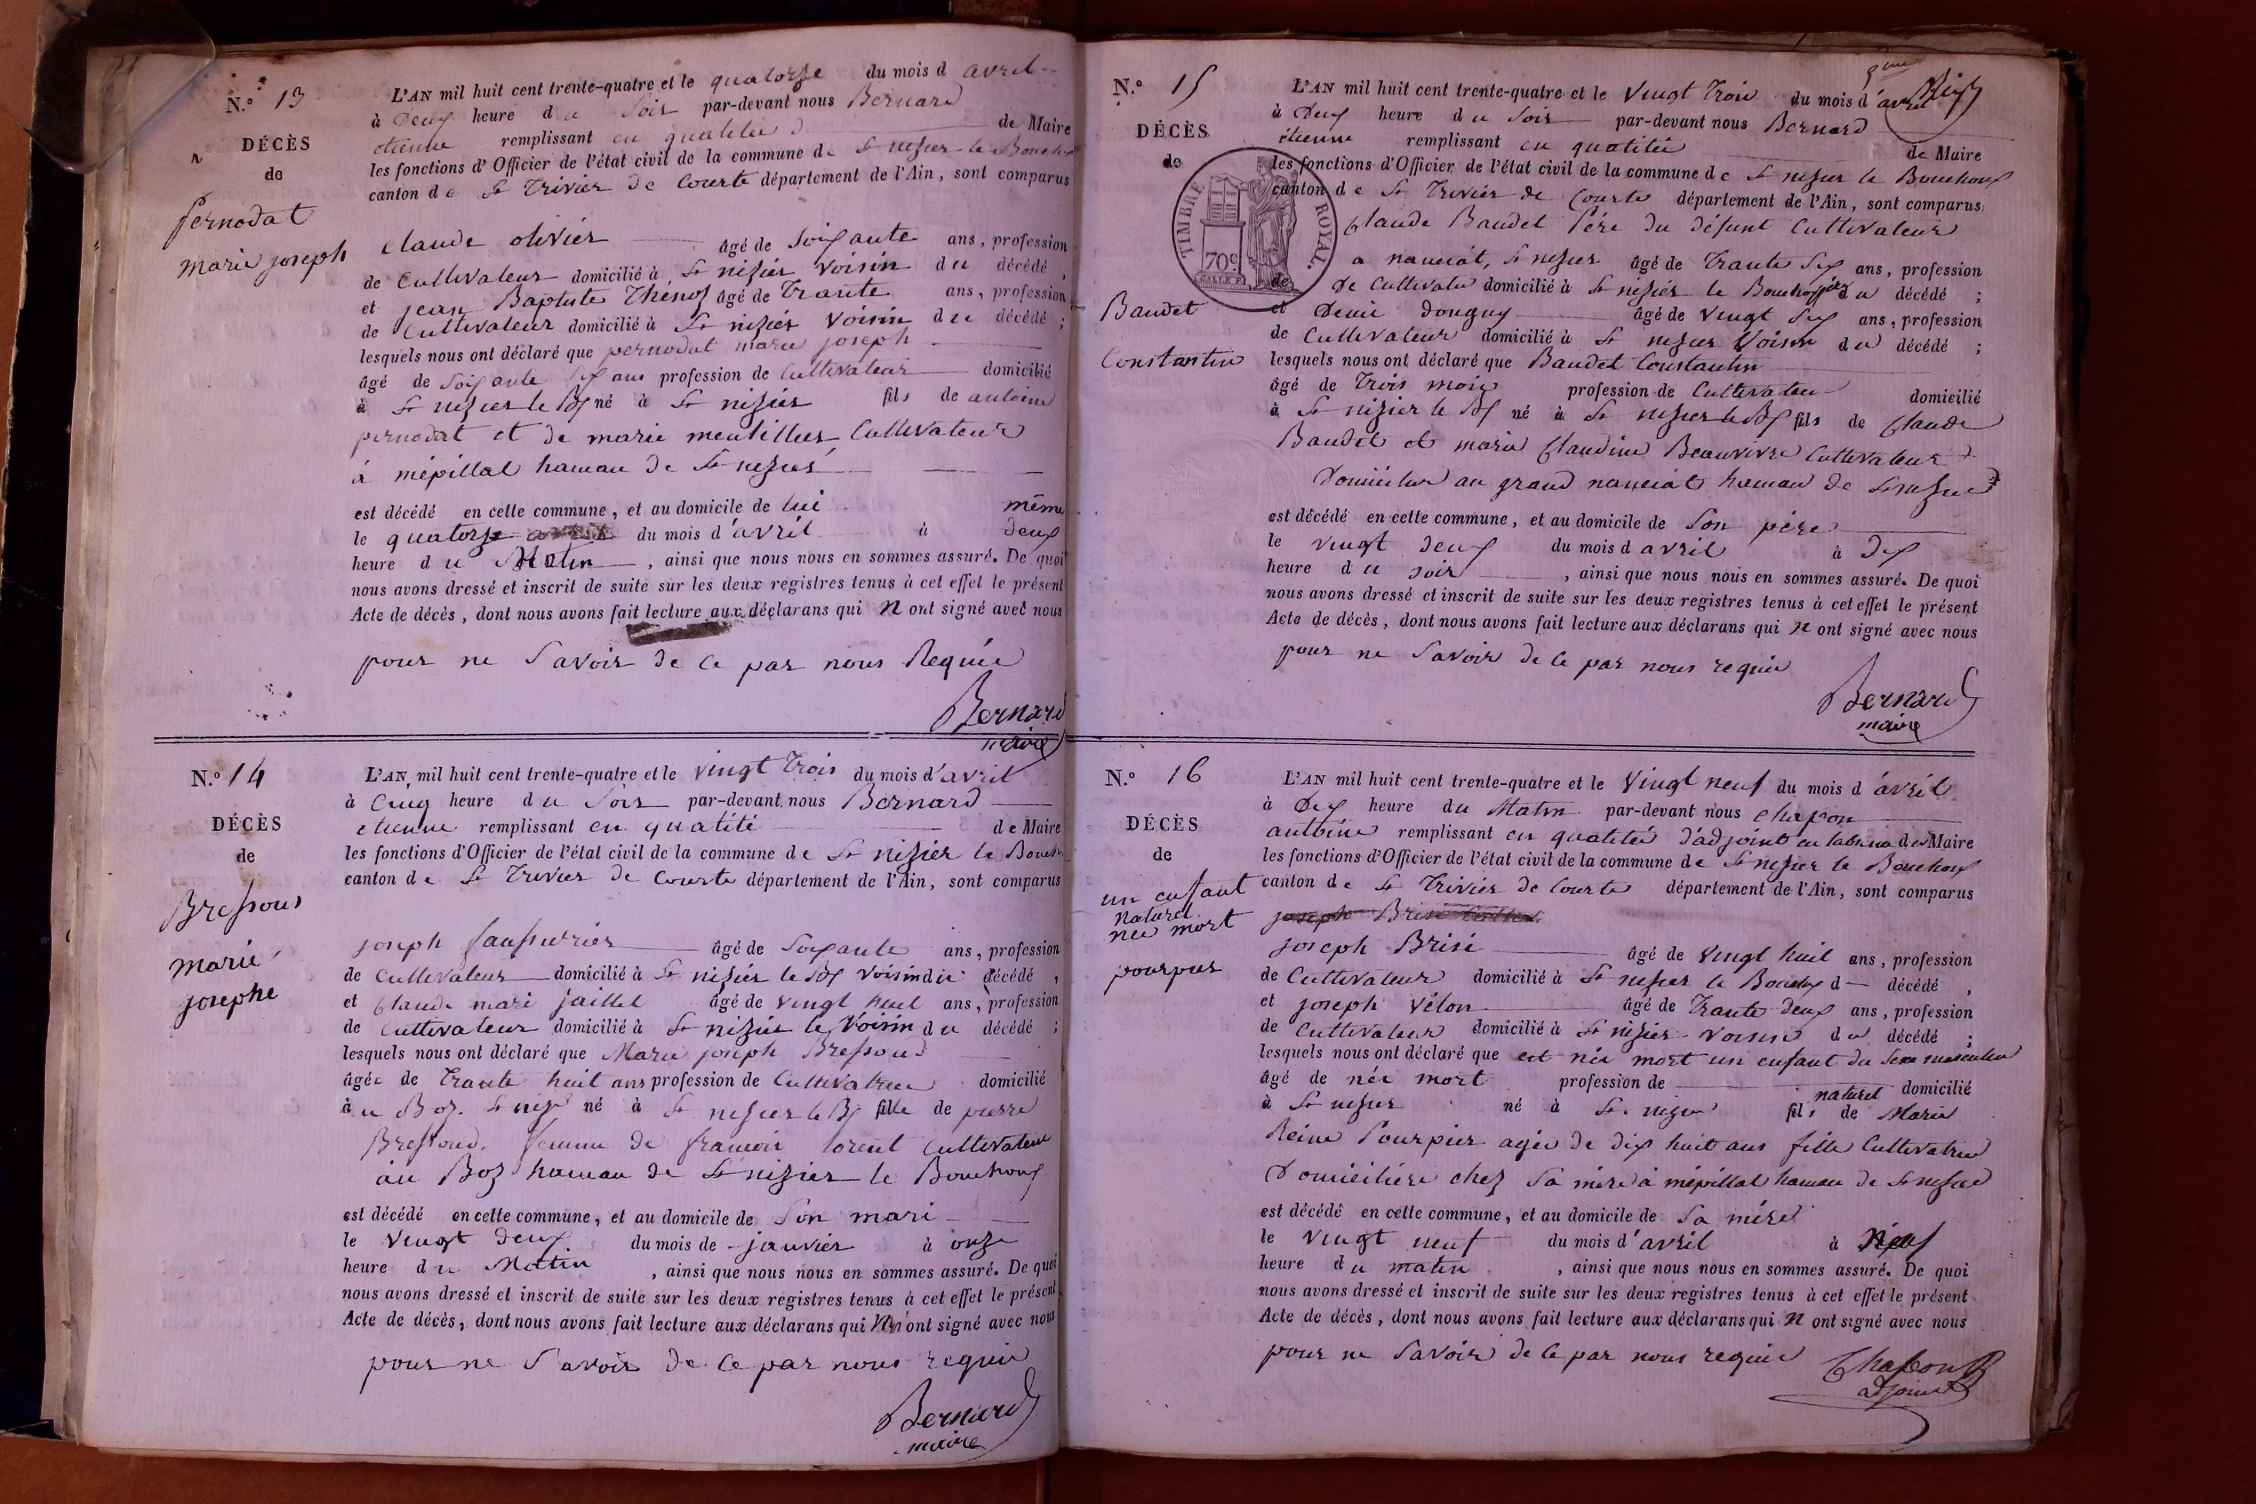 N.º 13
DÉCÈS
de
pernodat
marie joseph
L'AN mil huit cent trente-quatre et le quatorze du mois d avril
à Deux heure du Soir par-devant nous Bernard
etienne remplissant en qualitée de Maire
les fonctions d'Officier de l'état civil de la commune de St nizier le Bouchoux
canton de St Trivier de Courte département de l'Ain, sont comparus
Claude olivier âgé de Soixante ans, profession
de Cultivateur domicilié à St nizier Voisin du décédé,
et jean Baptiste Thénoz âgé de Trante ans, profession
de Cultivateur domicilié à St nizier Voisin du décédé ;
lesquels nous ont déclaré que pernodat marie joseph
âgé de Soixante Six ans profession de Cultivateur domicilié
à St nizier le Bx né à St nizier fils de antoine
pernodat et de marie Cultivateur
à mépillat hameau de St nizier
est décédé en cette commune, et au domicile de lui même
le quatorze du mois d'avril à deux
heure du Matin, ainsi que nous nous en sommes assuré. De quoi
nous avons dressé et inscrit de suite sur les deux registres tenus à cet effet le présent
Acte de décès, dont nous avons fait lecture aux déclarans qui n ont signé avec nous
pour ne Savoir de Ce par nous Requie
Bernard
maire
N.º 14
DÉCÈS
de
Bressous
marie
josephe
L'AN mil huit cent trente-quatre et le vingt Trois du mois d'avril
à Cinq heure du Soir par-devant nous Bernard
etienne remplissant en qualité de Maire
les fonctions d'Officier de l'état civil de la commune de St nizier le Bouch
canton de St Trivier de Courte département de l'Ain, sont comparus
joseph âgé de Soixante ans, profession
de Cultivateur domicilié à St nizier le Bx voisin du décédé,
et Claude mari jaillet âgé de vingt huit ans, profession
de Cultivateur domicilié à St nizier le Voisin du décédé ;
lesquels nous ont déclaré que Marie joseph Bressoud
âgée de Trante huit ans profession de Cultivatrice domicilié
au Boz. St nizi né à St nizier le Bx fille de pierre
Bressoud. femme de francois lorent Cultivateur
au Boz hameau de St nizier le Bouchoux
est décédé en cette commune, et au domicile de Son mari
le vingt deux du mois de janvier à onze
heure du Matin, ainsi que nous nous en sommes assuré. De quoi
nous avons dressé et inscrit de suite sur les deux registres tenus à cet effet le présent
Acte de décès, dont nous avons fait lecture aux déclarans qui n ont signé avec nous
pour ne Savoir de Ce par nous requie
Bernard
maire
N.º 15
DÉCÈS
de
Baudet
Constantin
TIMBRE ROYAL.
70c
L'AN mil huit cent trente-quatre et le Vingt Trois du mois d'avril
à Deux heure du Soir par-devant nous Bernard
étienne remplissant en qualitée de Maire
les fonctions d'Officier de l'état civil de la commune de St nizier le Bouchoux
canton de St Trivier de Courte département de l'Ain, sont comparus
Claude Baudet Père du défunt Cultivateur
a nanciat, St nizier âgé de Trante Six ans, profession
de De Cultivateu domicilié à St nizier le Bouchoux du décédé ;
et Denie donguy âgé de Vingt Six ans, profession
de Cultivateur domicilié à St nizier Voisin du décédé ;
lesquels nous ont déclaré que Baudet Constantin
âgé de Trois mois profession de Cultivateur domicilié
à St nizier le Bx né à St nizier le Bx fils de Claude
Baudet et marie Claudine Beauvivre Cultivateur
Domicilier au grand nanciat hameau de St nizier
est décédé en cette commune, et au domicile de Son père
le vingt deux du mois d avril à dix
heure du soir, ainsi que nous nous en sommes assuré. De quoi
nous avons dressé et inscrit de suite sur les deux registres tenus à cet effet le présent
Acte de décès, dont nous avons fait lecture aux déclarans qui n ont signé avec nous
pour ne Savoir de Ce par nous requie
Bernard
maire
N.º 16
DÉCÈS
de
un enfant
naturel
née mort
pourpier
L'AN mil huit cent trente-quatre et le Vingt neuf du mois d'avril
à Dix heure du Matin par-devant nous Chapon
antoine remplissant en qualitée d'adjoint de Maire
les fonctions d'Officier de l'état civil de la commune de St nizier le Bouchoux
canton de St Trivier de Courte département de l'Ain, sont comparus
joseph Brisi
joseph Brisi âgé de Vingt huit ans, profession
de Cultivateur domicilié à St nizier le Bouchx d décédé,
et joseph Vélon âgé de Trante deux ans, profession
de Cultivateur domicilié à St nizier Voisin du décédé ;
lesquels nous ont déclaré que est née mort un enfant du Sexe masculin
âgé de née mort profession de domicilié
à St nizier né à St nizier fils naturel de Marie
Reine Pourpier agée de dix huit ans fille Cultivatrice
Domicilière chez Sa mère à mépillat hameau de St nizier
est décédé en cette commune, et au domicile de Sa mére
le vingt neuf du mois d'avril à Neuf
heure du matin, ainsi que nous nous en sommes assuré. De quoi
nous avons dressé et inscrit de suite sur les deux registres tenus à cet effet le présent
Acte de décès, dont nous avons fait lecture aux déclarans qui n ont signé avec nous
pour ne Savoir de Ce par nous requie
Chapon
adjoint